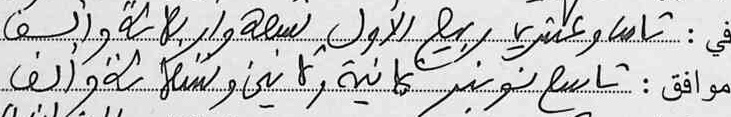 في : تاسع وعشرين ربيع الأول تسعة وأربعمائة وألف
موافق : تاسع نونبر ثمانية وثمانين وتسعمائة وألف